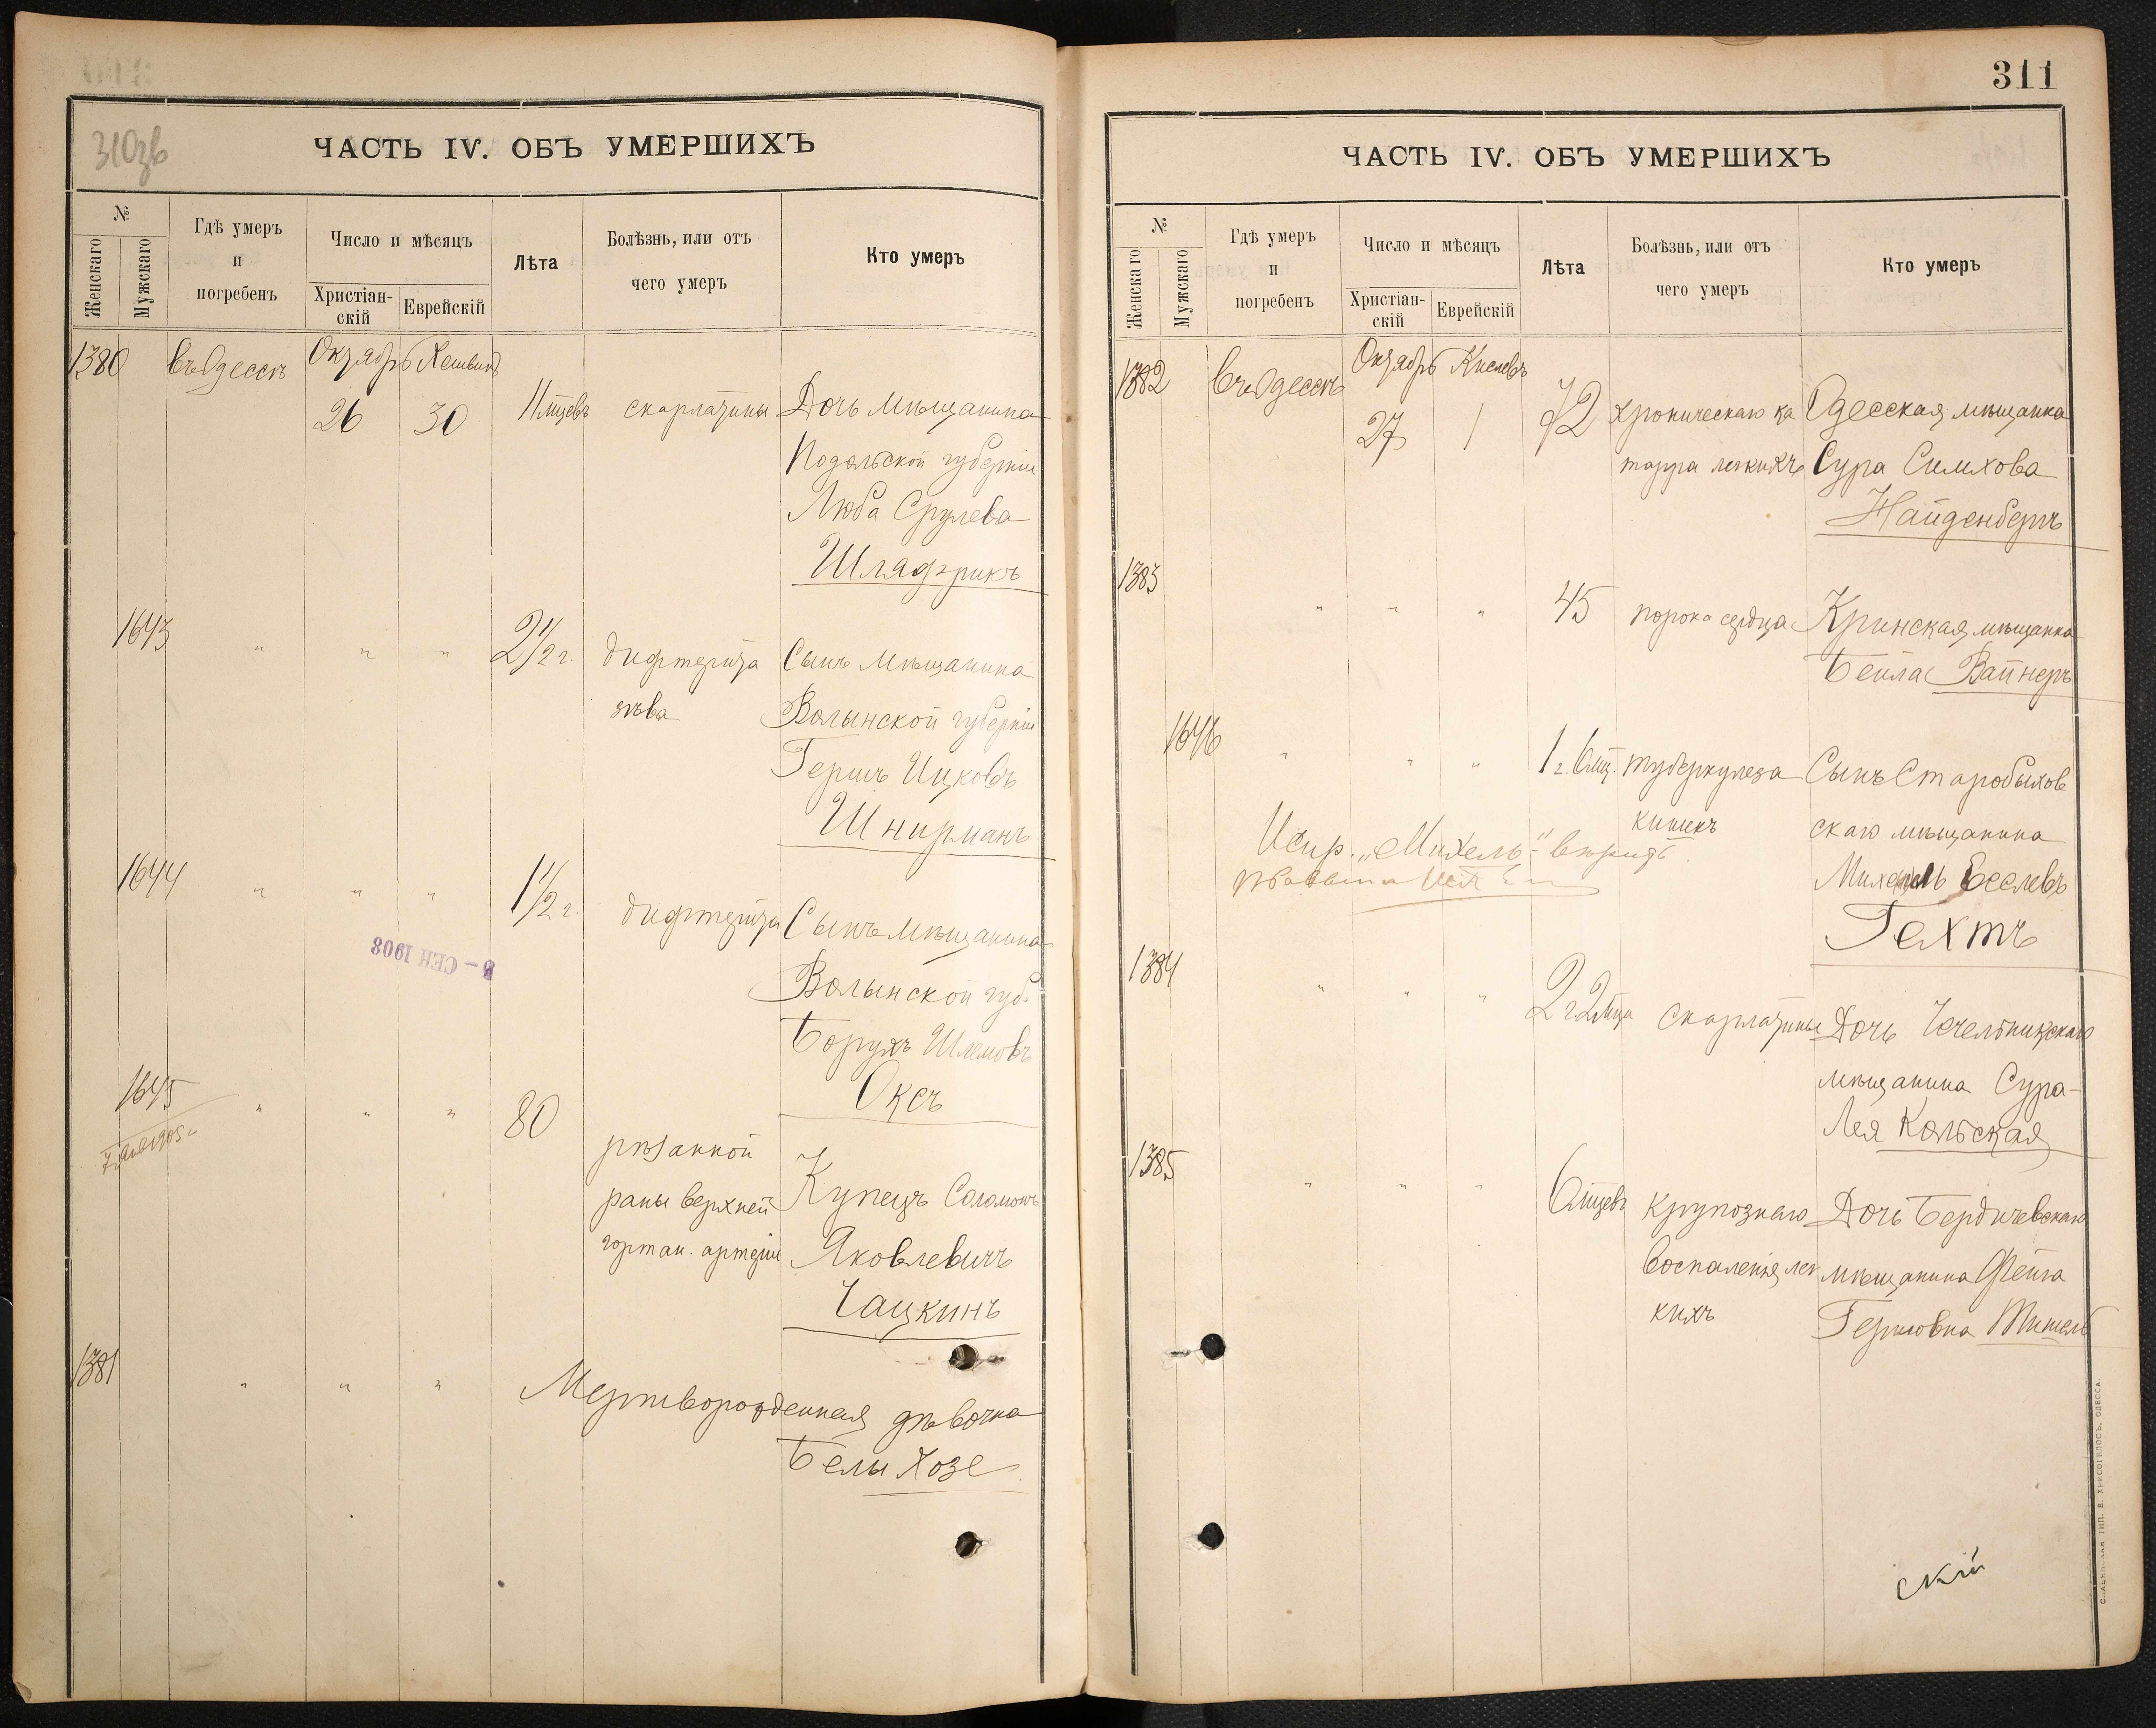 310зв
ЧАСТЬ IV. ОБЪ УМЕРШИХЪ
№
Женскаго
Мужскаго
Гдѣ умеръ
и
погребенъ
Число и мѣсяцъ
Христіан-
скій
Еврейскій
Лѣта
Болѣзнь, или отъ
чего умеръ
Кто умеръ
1380 въ Одессѣ Октябрь Хешванъ
26 30 11 мцевъ скарлатины Дочь мѣщанина
Подольской губерніи
Люба Срулева
Шлафрикъ
1643 " " " 2 1/2 г. дифтерита Сынъ мѣщанина
зѣва Волынской губерніи
Гершъ Ицковъ
Шнирманъ
1644 " " " 1 1/2 г. дифтерита Сынъ мѣщанина
8 - СЕН 1908
Волынской губ.
Борухъ Шлемовъ
Оксъ
1645 " " " 80
рѣзанной
раны верхней Купецъ Соломонъ
гортан. артеріи Яковлевичъ
Чацкинъ
1381 " " " Мертворожденная дѣвочка
Белы Хозе
311
ЧАСТЬ IV. ОБЪ УМЕРШИХЪ
№
Женскаго
Мужскаго
Гдѣ умеръ
и
погребенъ
Число и мѣсяцъ
Христіан-
скій
Еврейскій
Лѣта
Болѣзнь, или отъ
чего умеръ
Кто умеръ
1382 въ Одессѣ Октябрь Кислевъ
27 1 72 хроническаго ка Одесская мѣщанка
тарра легкихъ Сура Симхова
Найденбергъ
1383 " " " 45 порока сердца Кринская мѣщанка
Бейла Вайнеръ
1646 " " " 1 г. 6 мц. туберкулеза Сынъ Старобыхов
кишекъ скаго мѣщанина
Испр. „Михель" вѣрить
Михель Еселевъ
Гехтъ
1384 " " " 2 г 2 мца скарлатины Дочь Чечельницкаго
мѣщанина Сура-
Лея Кольская
1385 " " " 6 мцевъ крупознаго Дочь Бердичевскаго
воспаленія лег мѣщанина Фейга
кихъ Гершовна Тительъ
скій
СЛАВЯНСКАЯ ТИП. Е. ХРИСОГЕЛОСЪ, ОДЕССА.